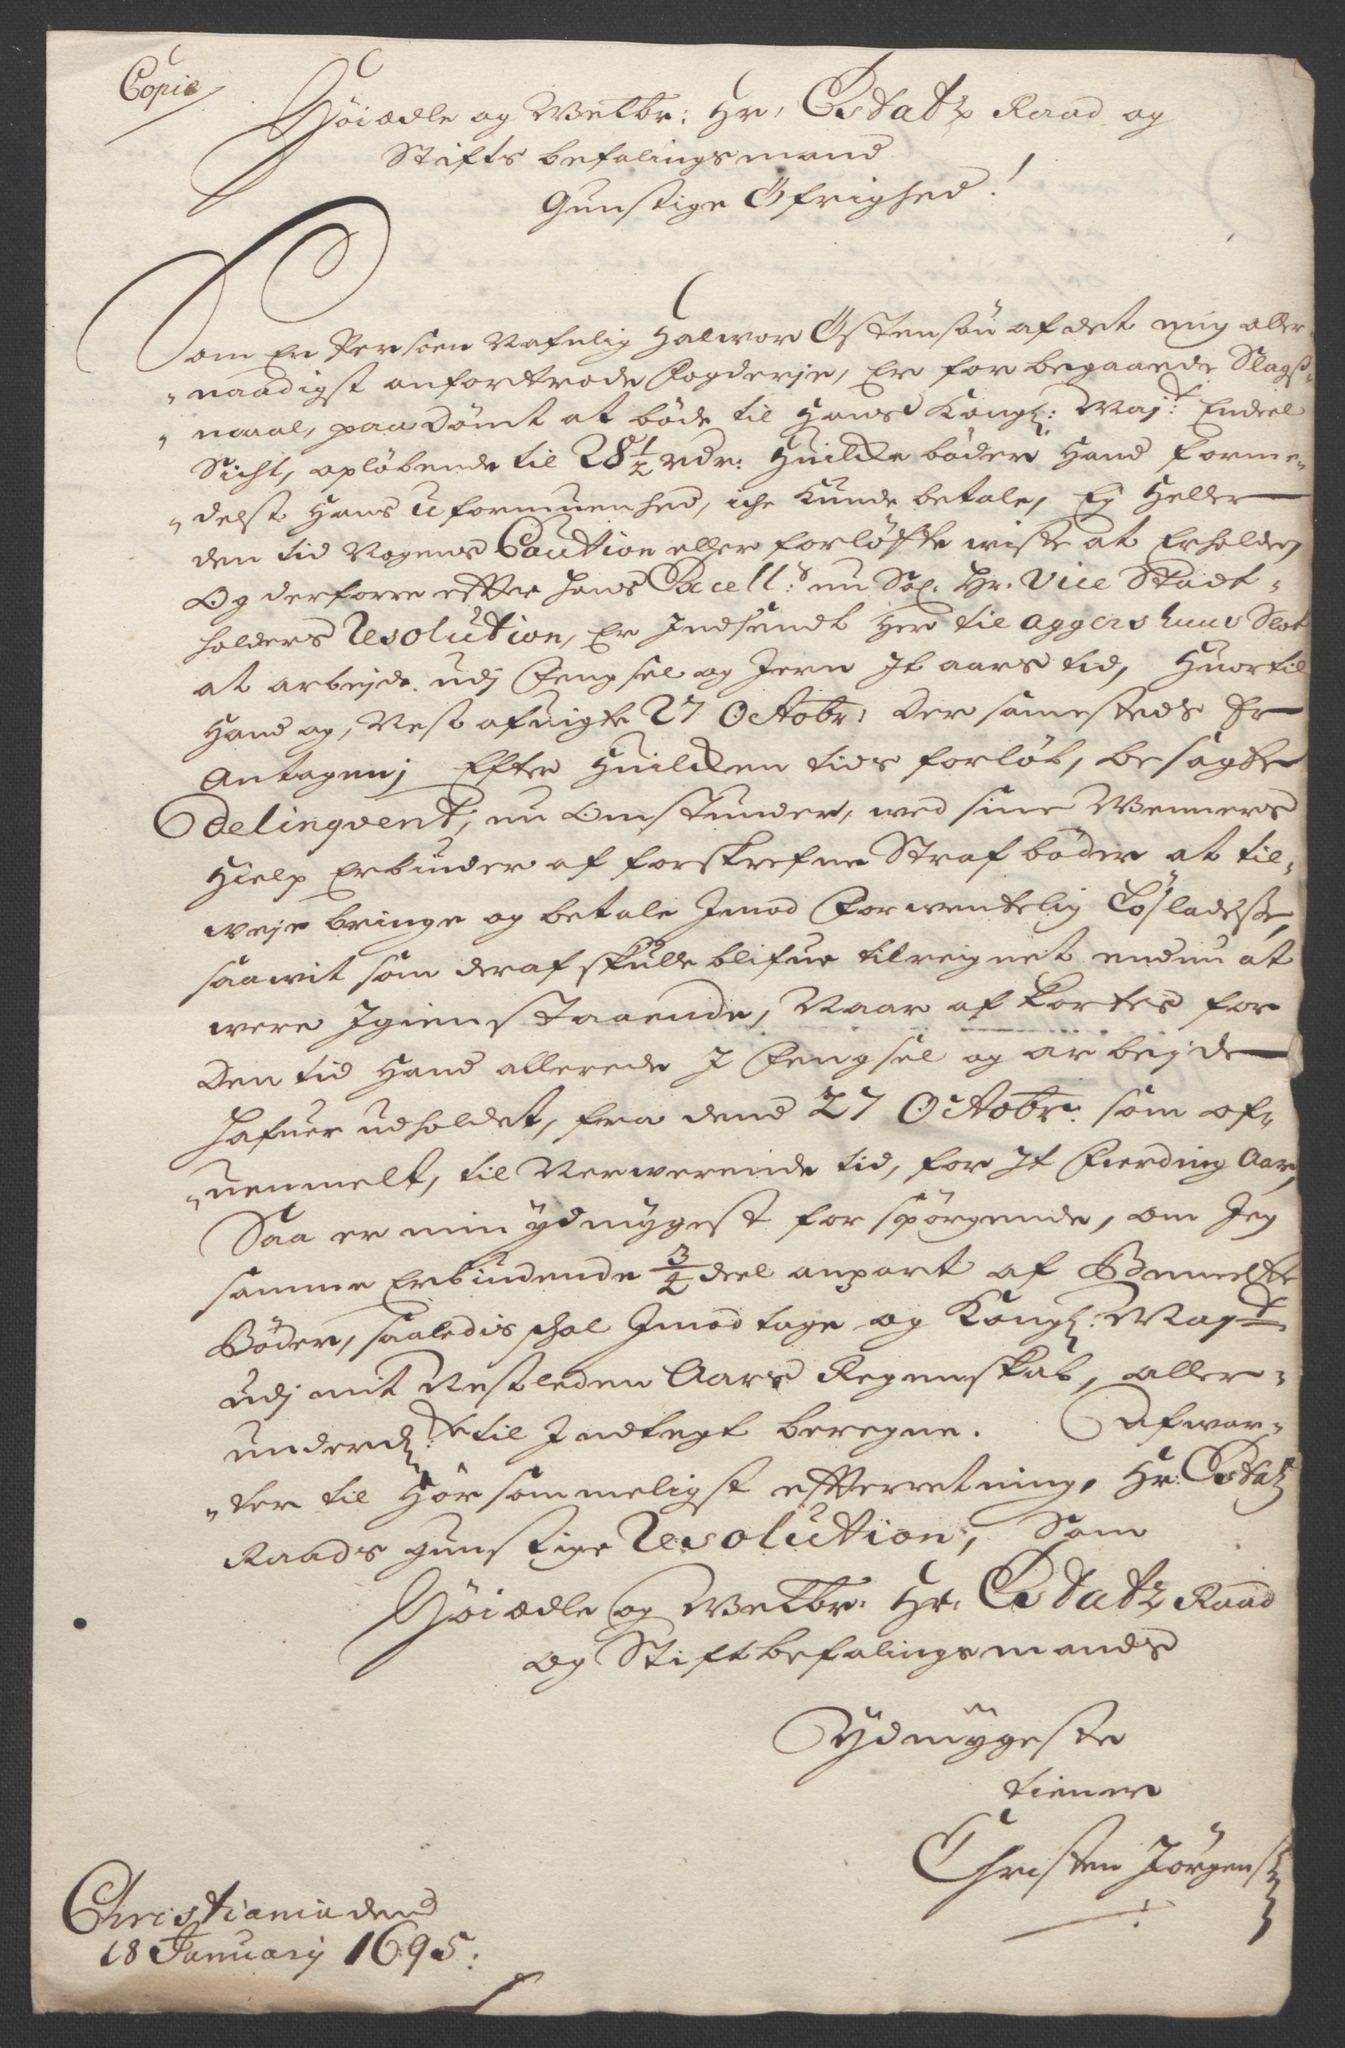 Copie
Høiædle og Welbr: Hr: Estatz Raad og
Stifts befalings mand
Gunstige Öfrighed!
Som En Persoen Nafnlig Halwor Östensøn af det mig aller
„naadigst anfortrode Fogderje, Er for begaaende Slags„
„maal, paa dömt at böde til Hans Kongl: Maj:t Endeel
Sicht, opløbende til 28½ rdr: Huilke böder Hand forme„
„delst Hans uformuenhed, iche Kunde betale, Ej Heller
den tid Nogens Caution eller forløfte wiste at Erholde,
Og derforre efter Hans Excell:s nu Sal. Hr. Vice Stadt„
holders Resolution, Er Indsendt Her til Aggershuus Slot
at arbejde udj Fengsel og Jern It aars tid, Huortil
Hand og, Nest afuigte 27 Octobr: der sammesteds Er
Antagen; Efter Huilken tids forløb, besagte
delinqvent, nu Omstunder, wed sine Wenners
Hielp Erbinder af forskrefne Straf böder at til„
weje bringe og betale Imod Forwentelig Løsladelse,
saawit som deraf skulle blifue tilreignet endnu at
were Igienstaaende, Naar af kortes for
den tid Hand allerede I Fengsel og arbejde
Hafuer udholdet, fra dend 27 Octobr: som of„
„uenmelt, til Nerwerende tid, for It Fierding Aar,
Saa er min ydmygest forspörgende, om Jeg
samme Erbindende 3/4 deel anpart af Bemelte
Böder, saaledis skal Imodtage og Kongl: Maj:t
udj mit Nestleden Aars Regenskab, aller„
underd:te til Indtegt beregne. Afwar„
„ter til Hörsommeligst efterretning, Hr: Estatz
Raads gunstige Resolution, Som
Høiædle og Welbr: Hr: Estatz Raad
og Stiftbefalings mands
Ydmygeste
tiener
Christen Jörgens
Christiania dend
18 January 1695: